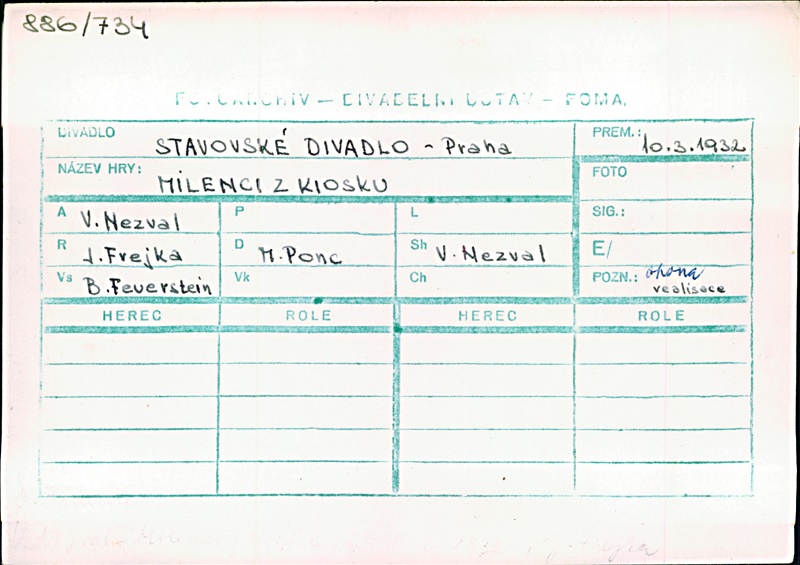 886/734
FOTOARCHIV — DIVADELNÍ ÚSTAV — FOMA.
DIVADLO STAVOVSKÉ DIVADLO - Praha PREM.: 10.3.1932
NÁZEV HRY: MILENCI Z KIOSKU FOTO
A V. Nezval P L SIG.:
R J. Frejka D M. Ponc Sh V. Nezval E/
Vs B. Feuerstein Vk Ch POZN.: opona
realisace
HEREC ROLE HEREC ROLE